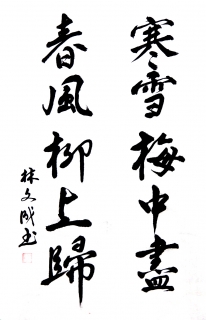 寒雪梅中盡
春風柳上歸
林文成書